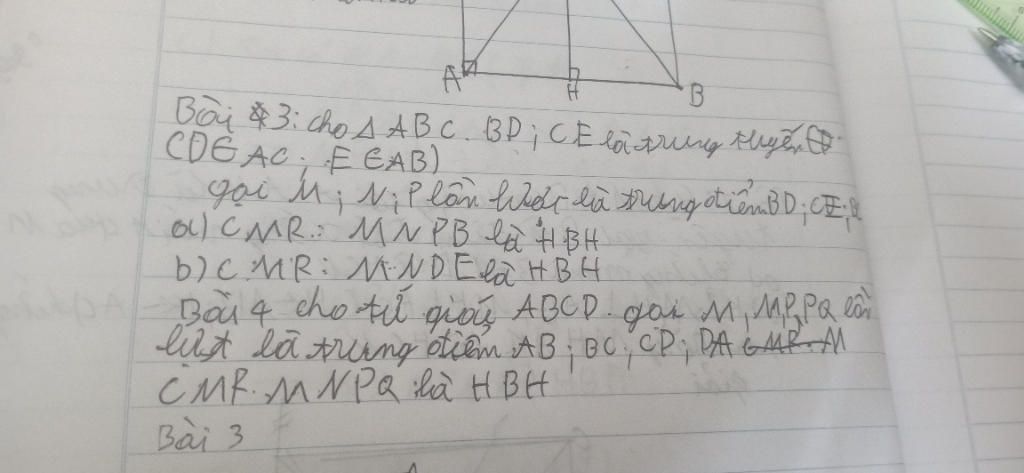 A H B
Bài 3: cho Δ ABC. BD; CE là trung tuyến
(D∈AC; E∈AB)
gọi M; N; P lần lượt là trung điểm BD; CE; B
a) CMR: MNPB là HBH
b) CMR: MNDE là HBH
Bài 4 cho tứ giác ABCD. gọi M, N, P, Q lần
lượt là trung điểm AB; BC; CD; DA
CMR. MNPQ là HBH
Bài 3